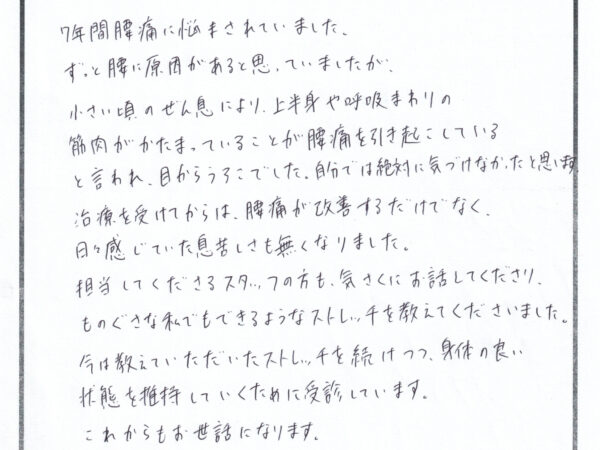 7年間腰痛に悩まされていました。
ずっと腰に原因があると思っていましたが、
小さい頃のぜん息により、上半身や呼吸まわりの
筋肉がかたまっていることが腰痛を引き起こしている
と言われ、目からうろこでした。自分では絶対に気づけなかったと思います。
治療を受けてからは、腰痛が改善するだけでなく、
日々感じていた息苦しさも無くなりました。
担当してくださるスタッフの方も、気さくにお話してくださり、
ものぐさな私でもできるようなストレッチを教えてくださいました。
今は教えていただいたストレッチを続けつつ、身体の良い
状態を維持していくために受診しています。
これからもお世話になります。